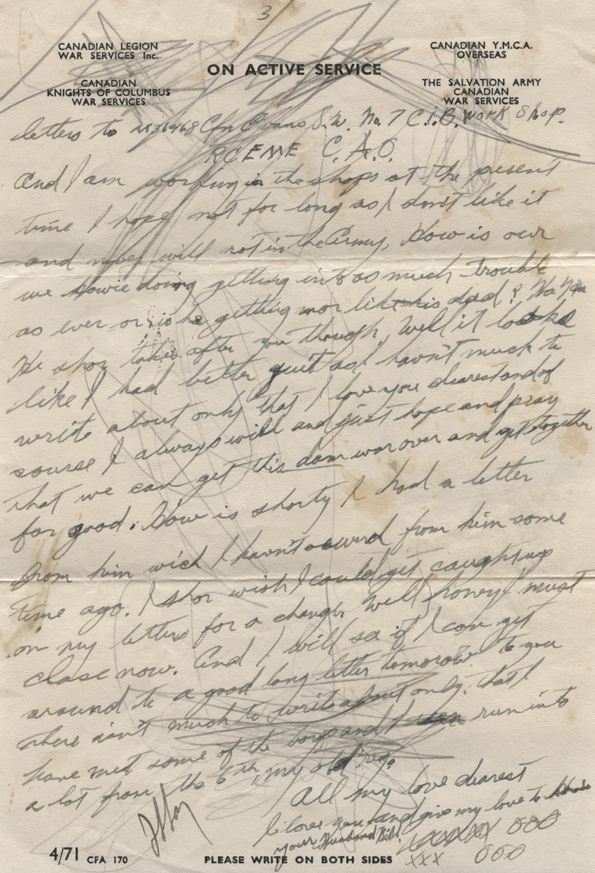 3
CANADIAN LEGION
WAR SERVICES Inc.
CANADIAN
KNIGHTS OF COLUMBUS
WAR SERVICES
ON ACTIVE SERVICE
CANADIAN Y.M.C.A.
OVERSEAS
THE SALVATION ARMY
CANADIAN
WAR SERVICES
letters to Cfn Evans S.W. No. 7 C.I.B. Work Shop.
RCEME C.A.O.
And I am working in the shops at the present
time I hope not for long as I don't like it
and never will not in the Army, How is our
wee howie doing getting into as much trouble
as ever or is he getting mor like his dad? Ha Ha
He shor takes after you though, Well it looks
like I had better quit as I havn't much to
write about only that I love you dearest and of
course I always will and just hope and pray
that we can get this dam war over and get together
for good. How is shorty I had a letter
from him wich I havn't answerd from him some
time ago. I shor wish I could get caught up
on my letters for a change. Well honey I must
close now. And I will se if I can get
around to a good long letter tomorow to you
there ain't much to write about only that I
have met some of the boys and I run into
a lot from the 6th my old
All my love dearest
I love you and give my love to
your Husband Bill.
xxxxxxx 000
xxx 000
4/71 CFA 170
PLEASE WRITE ON BOTH SIDES